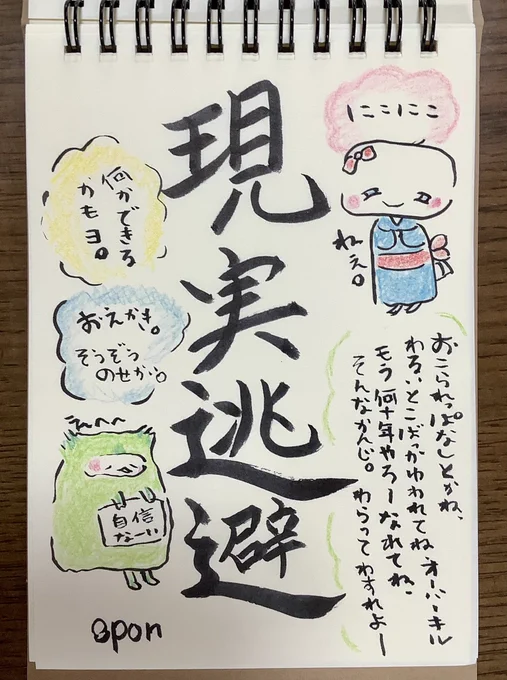 現実逃避
にこにこ
ねぇ。
おこられっぱなしとかね、
わるいとこばっかゆわれてねオーバーキル
もう何十年やろーなれてね、
そんなかんじ。わらってわすれよー
何かできる
かもヨ。
おえかき。
そうぞう
のせかい。
えへへ
自信
なーい
spon